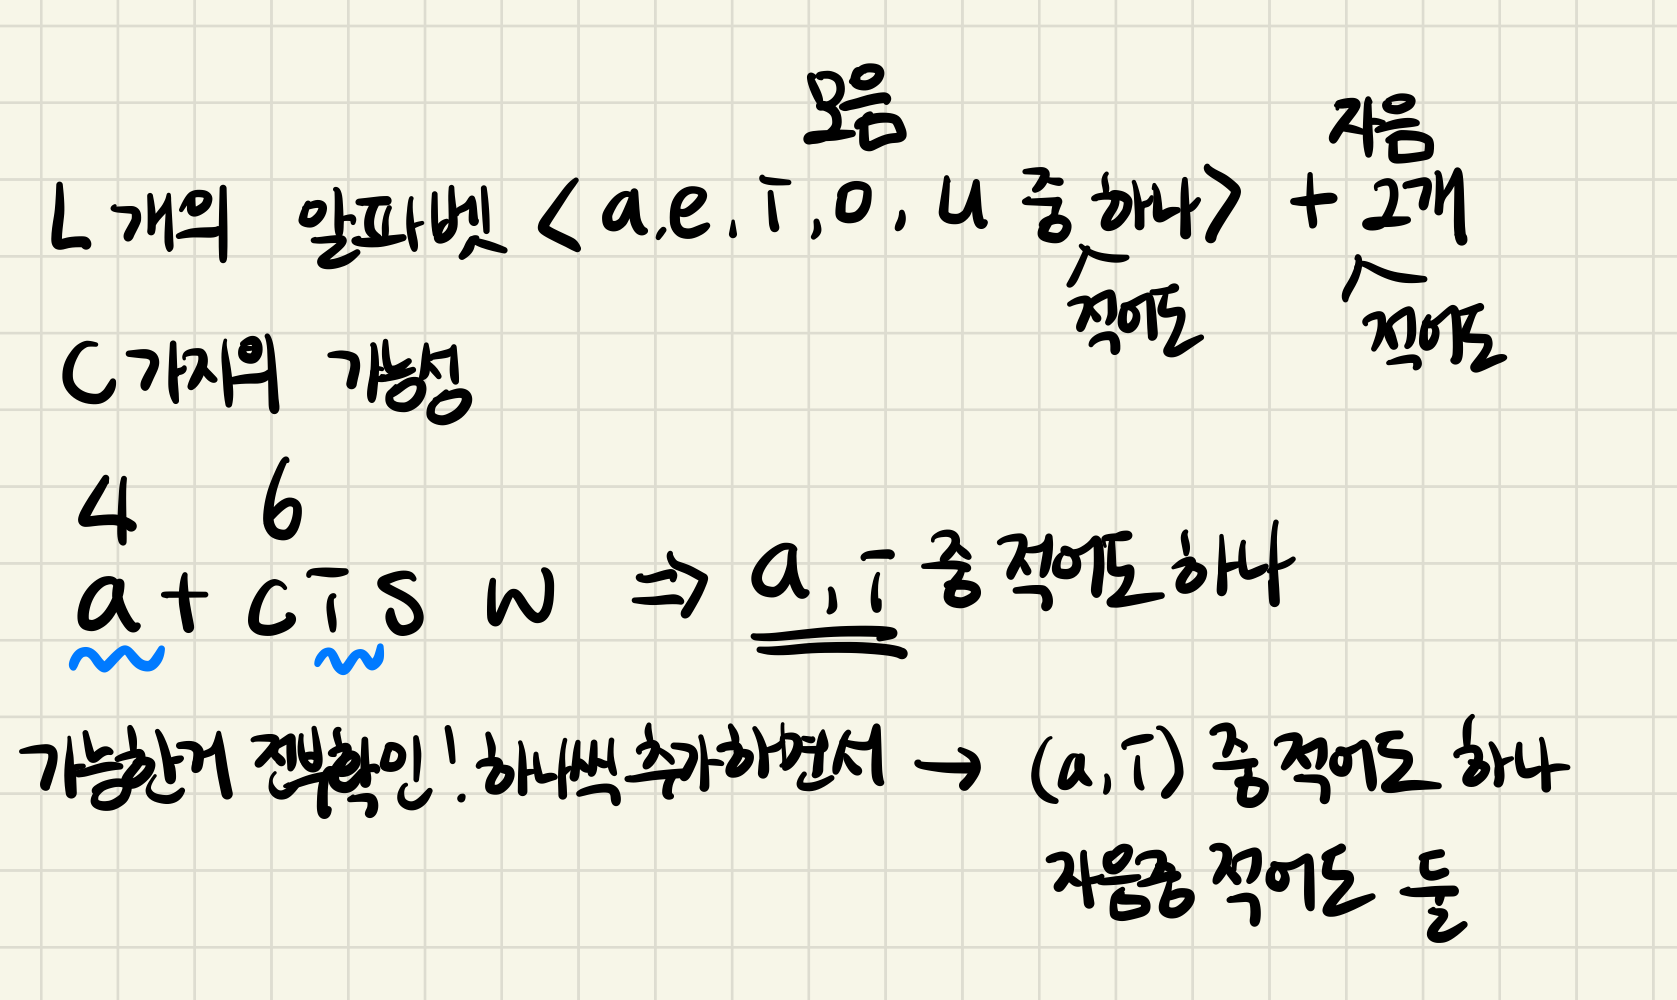 모음 자음
L개의 알파벳 <a,e,i,o,u 중 하나> + 2개
적어도 적어도
C가지의 가능성
4 6
a t c i s w ⇒ a, i 중 적어도 하나
가능한거 전부확인! 하나씩 추가하면서 → (a, i) 중 적어도 하나
자음중 적어도 둘